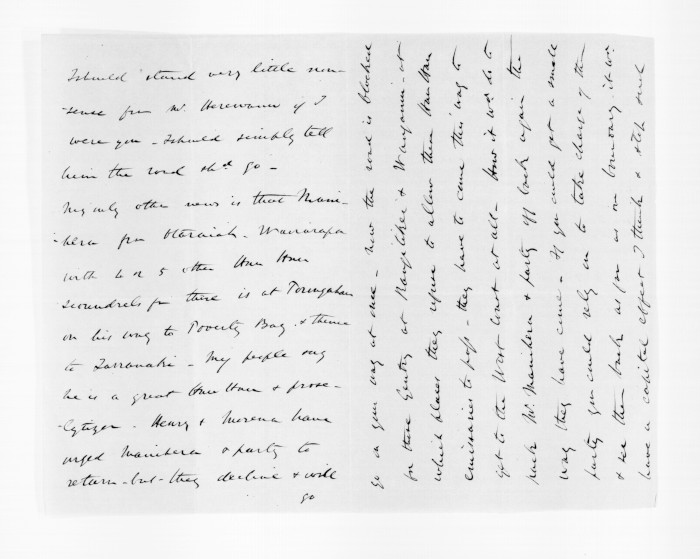 I should stand very little non-
-sense from Mr. Herewana if I
were you - I should simply tell
him the road shd go -
My only other news is that Mani-
-hera from Otaraiah - Wairarapa
with 4 or 5 other Hau Hau
scoundrels fm there is at Porangahau
on his way to Poverty Bay & thence
to Tarranaki - My people say
he is a great Hau Hau & prose-
-lytizer. Henry & Morena have
urged Manihera & party to
return - but - they decline & will
go
go on your way at once - now the road is blocked
for these Gentry at Rangitikei & Wanganui - at
which places they refuse to allow their Hau Hau
emissaries to pass - they have to come this way to
get to the West Coast at all - How it wd do to
pack Mr. Manihera & party off back again the
way they have come - If you could get a small
party you could rely on to take charge of them
& see them back as far as our boundary it wd
have a capital effect I think & stop such